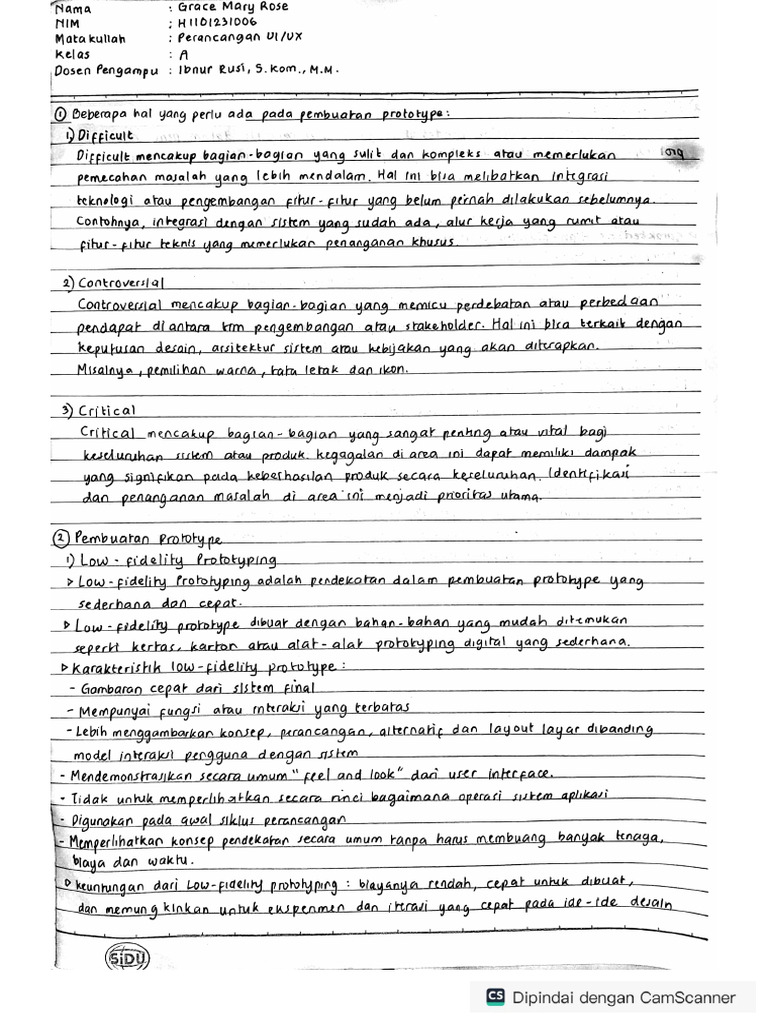 Nama : Grace Mary Rose
NIM : H1101231006
Mata kuliah : Perancangan UI/UX
Kelas : A
Dosen Pengampu : Ibnur Rusi, S.Kom., M.M.
① Beberapa hal yang perlu ada pada pembuatan prototype:
1) Difficult
Difficult mencakup bagian-bagian yang sulit dan kompleks atau memerlukan
pemecahan masalah yang lebih mendalam. Hal ini bisa melibatkan integrasi
teknologi atau pengembangan fitur-fitur yang belum pernah dilakukan sebelumnya.
Contohnya, integrasi dengan sistem yang sudah ada, alur kerja yang rumit atau
fitur-fitur teknis yang memerlukan penanganan khusus.
2) Controversial
Controversial mencakup bagian-bagian yang memicu perdebatan atau perbedaan
pendapat di antara tim pengembangan atau stakeholder. Hal ini bisa terkait dengan
keputusan desain, arsitektur sistem atau kebijakan yang akan diterapkan.
Misalnya, pemilihan warna, tata letak dan ikon.
3) Critical
Critical mencakup bagian-bagian yang sangat penting atau vital bagi
keseluruhan sistem atau produk. Kegagalan di area ini dapat memiliki dampak
yang signifikan pada keberhasilan produk secara keseluruhan. Identifikasi
dan penanganan masalah di area ini menjadi prioritas utama.
② Pembuatan Prototype
1) Low-fidelity Prototyping
▹ Low-fidelity Prototyping adalah pendekatan dalam pembuatan prototype yang
sederhana dan cepat.
▹ Low-fidelity prototype dibuat dengan bahan-bahan yang mudah ditemukan
seperti kertas, karton atau alat-alat prototyping digital yang sederhana.
▹ Karakteristik low-fidelity prototype:
- Gambaran cepat dari sistem final
- Mempunyai fungsi atau interaksi yang terbatas
- Lebih menggambarkan konsep, perancangan, alternatif dan layout layar dibanding
model interaksi pengguna dengan sistem
- Mendemonstrasikan secara umum "feel and look" dari user interface.
- Tidak untuk memperlihatkan secara rinci bagaimana operasi sistem aplikasi
- Digunakan pada awal siklus perancangan
- Memperlihatkan konsep pendekatan secara umum tanpa harus membuang banyak tenaga,
biaya dan waktu.
▹ Keuntungan dari Low-fidelity prototyping : biayanya rendah, cepat untuk dibuat,
dan memungkinkan untuk eksperimen dan iterasi yang cepat pada ide-ide desain
SiDU
CS Dipindai dengan CamScanner